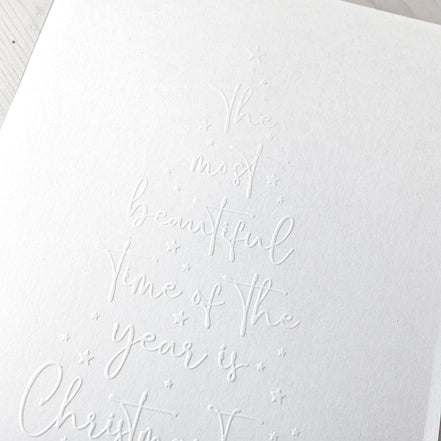 The
most
beautiful
time of the
year is